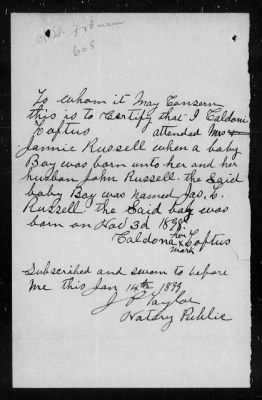 608
To whom it May Concern
this is to Certify that I Caldona
Loftus attended Mrs
Jannie Russell when a baby
Boy was born unto her and her
husban John Russell. the Said
baby Boy was named Jas. L.
Russell the Said boy was
born on Nov 3d 1898.
her
Caldona x Loftus
mark
Subscribed and sworn to before
me this Jan 14th 1899
J P Taylor
Notary Public